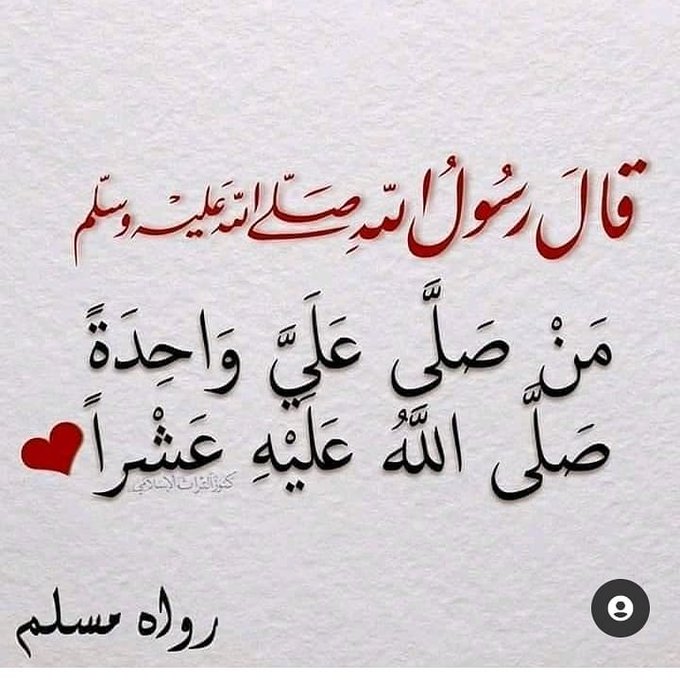 قالَ رسُولُ اللهِ صَلّى اللهُ عَليْه وسلّم
مَنْ صَلَّى عَلَيَّ وَاحِدَةً
صَلَّى اللَّهُ عَلَيْهِ عَشْراً
كنوز التراث الإسلامي
رواه مسلم